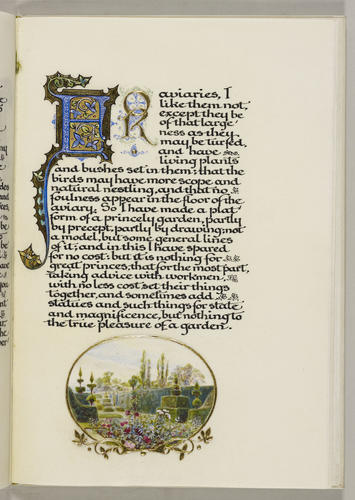 FOR aviaries, I
like them not,
except they be
of that large
ness as they
may be turfed,
and have
living plants
and bushes set in them; that the
birds may have more scope and
natural nestling, and that no
foulness appear in the floor of the
aviary. So I have made a plat
form of a princely garden, partly
by precept, partly by drawing; not
a model, but some general lines
of it; and in this I have spared
for no cost: but it is nothing for
great princes, that for the most part,
taking advice with workmen,
with no less cost set their things
together, and sometimes add
statues and such things for state
and magnificence, but nothing to
the true pleasure of a garden.